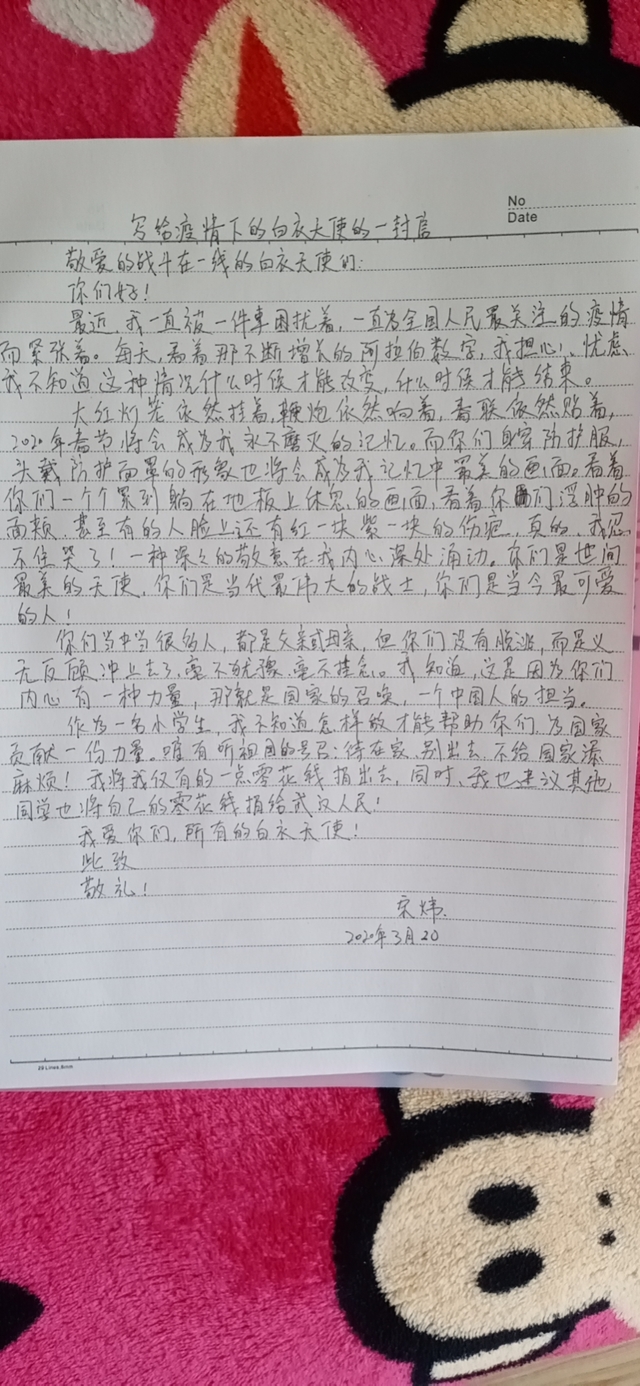 No
Date
写给疫情下的白衣天使的一封信
敬爱的战斗在一线的白衣天使们:
你们好!
最近,我一直被一件事困扰着,一直为全国人民最关注的疫情
而紧张着。每天,看着那不断增长的阿拉伯数字,我担心、忧虑,
我不知道这种情况什么时候才能改变,什么时候才能结束。
大红灯笼依然挂着,鞭炮依然响着,春联依然贴着,
2020年春节将会成为我永不磨灭的记忆。而你们身穿防护服,
头戴防护面罩的形象也将会成为我记忆中最美的画面。看着
你们一个个累到躺在地板上休息的画面,看着你们浮肿的
面颊,甚至有的人脸上还有红一块紫一块的伤疤,真的,我忍
不住哭了!一种深々的敬意在我内心深处涌动。你们是世间
最美的天使,你们是当代最伟大的战士,你们是当今最可爱
的人!
你们当中当很多人,都是父亲或母亲,但你们没有脱逃,而是义
无反顾冲上去了,毫不犹豫,毫不挂念。我知道,这是因为你们
内心有一种力量,那就是国家的召唤,一个中国人的担当。
作为一名小学生,我不知道怎样做才能帮助你们,为国家
贡献一份力量。唯有听祖国的号召:待在家,别出去,不给国家添
麻烦!我将我仅有的一点零花钱捐出去,同时,我也建议其他
同学也将自己的零花钱捐给武汉人民!
我爱你们,所有的白衣天使!
此致
敬礼!
宋炜.
2020年3月20
29 Lines.8mm